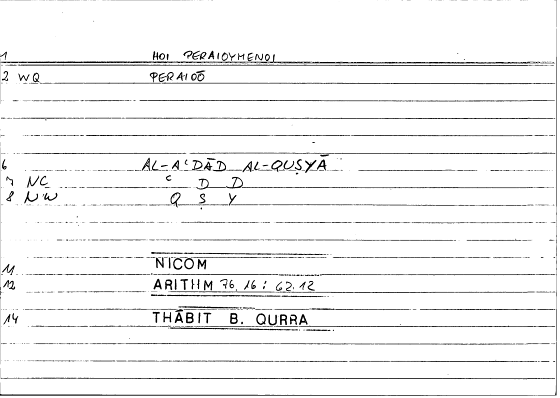 1 HOI PERAIOYMENOI
2 WQ PERAIOŌ
6 AL-AʿDĀD AL-QUṢYĀ
7 NC ʿ D D
8 NW Q Ṣ Y
11 NICOM
12 ARITHM 76.16 : 62.12
14 THĀBIT B. QURRA